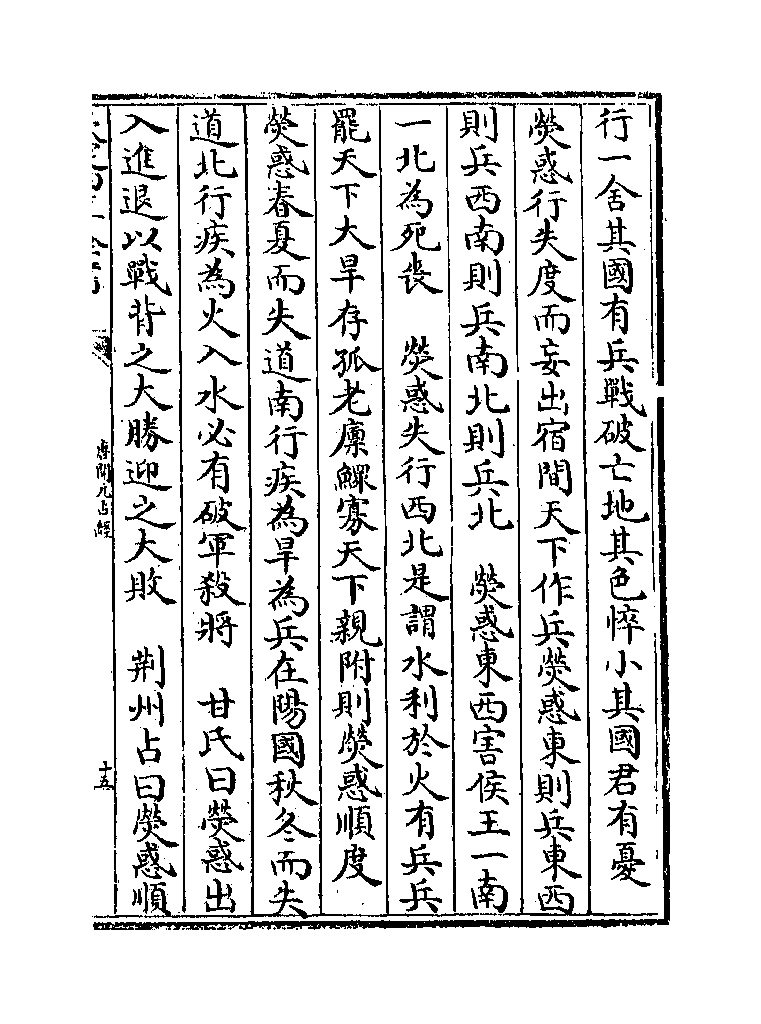 行一舍其國有兵戰破亡地其色悴小其國君有憂
熒惑行失度而妄出宿間天下作兵熒惑東則兵東西
則兵西南則兵南北則兵北　熒惑東西害侯王一南
一北為死喪　熒惑失行西北是謂水利於火有兵兵
罷天下大旱存孤老廩鰥寡天下親附則熒惑順度
熒惑春夏而失道南行疾為旱為兵在陽國秋冬而失
道北行疾為火入水必有破軍殺將　甘氏曰熒惑出
入進退以戰背之大勝迎之大敗　荆州占曰熒惑順
唐開元占經
十五